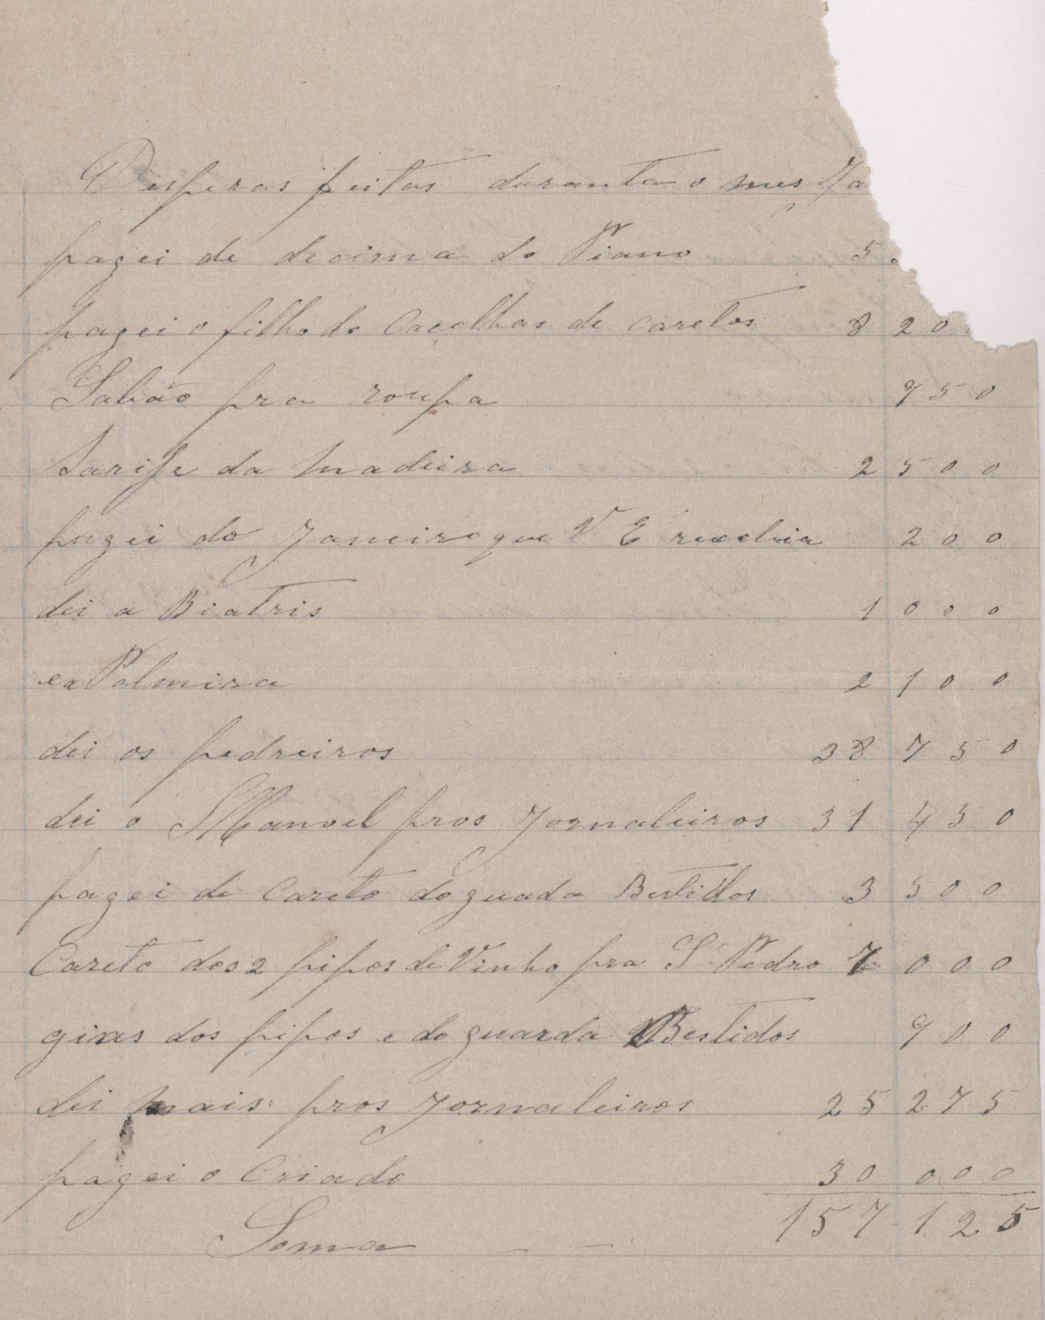 Despezas feitas durante o mes Ja
pagei de decima do Piano 5
pagei o filho do de caretos 8 200
Sabão pra roupa 950
Tarife da Madeira 2 500
pagei do Janeiro que V E recebeia 200
dei a Biatris 1 000
e a Palmira 2 100
dei os pedreiros 38 750
dei o Manoel pros Jornaleiros 31 450
pagei de Careto do guada Bestidos 3 500
Careto dos 2 pipos de Vinho pra S Pedro 7 000
giras dos pipos e do guarda Bestidos 900
dei mais pros Jornaleiros 25 275
pagei o Criado 30 000
Soma 157 125